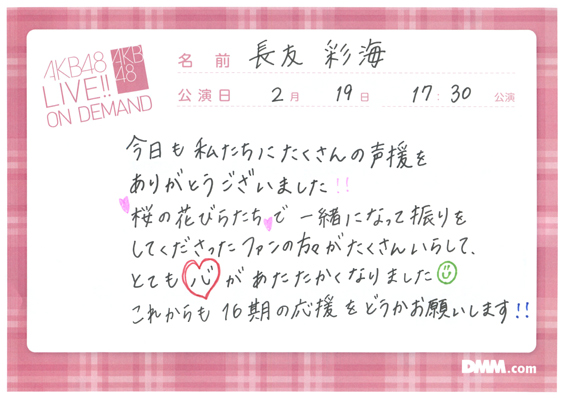 AKB48
LIVE!!
ON DEMAND
AKB
48
名前 長友 彩海
公演日 2月 19日 17:30 公演
今日も私たちにたくさんの声援を
ありがとうございました!!
桜の花びらたちで一緒になって振りを
してくださったファンの方々がたくさんいらして、
とても心があたたかくなりました
これからも16期の応援をどうかお願いします!!
DMM.com